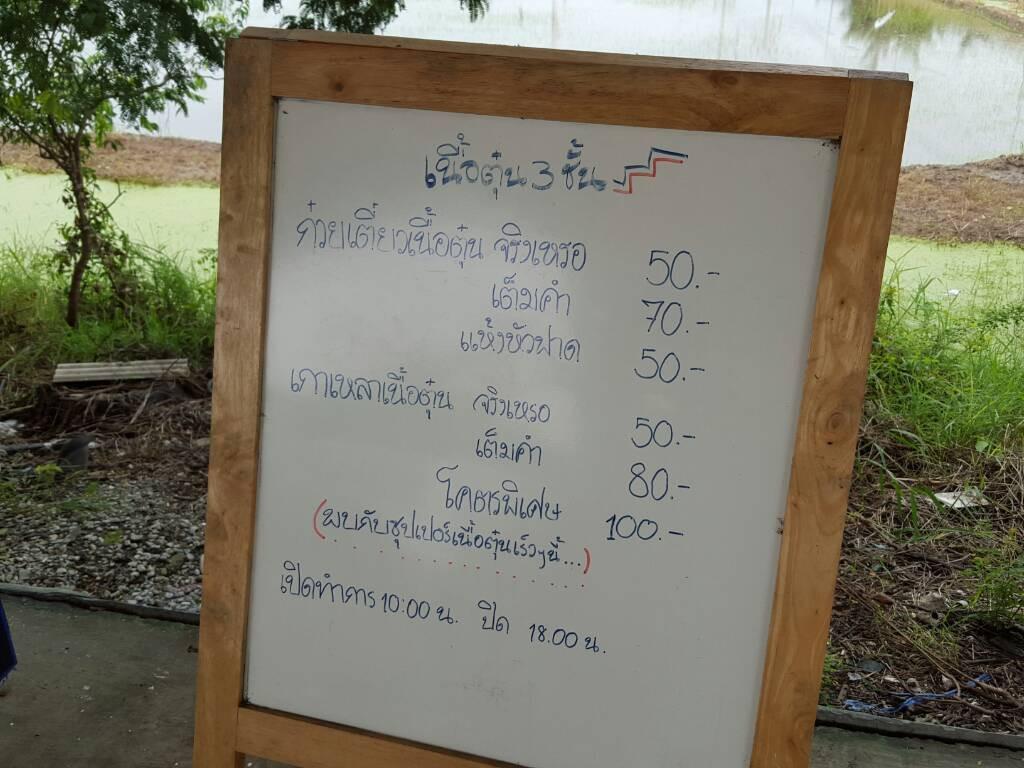 เนื้อตุ๋น 3 ชั้น
ก๋วยเตี๋ยวเนื้อตุ๋น จริงเหรอ 50.-
เต็มคำ 70.-
แห้งหัวฟาด 50.-
เกาเหลาเนื้อตุ๋น จริงเหรอ 50.-
เต็มคำ 80.-
โคตรพิเศษ 100.-
(พบกับซุปเปอร์เนื้อตุ๋นเร็วๆนี้...)
เปิดทำการ 10:00 น. ปิด 18.00 น.